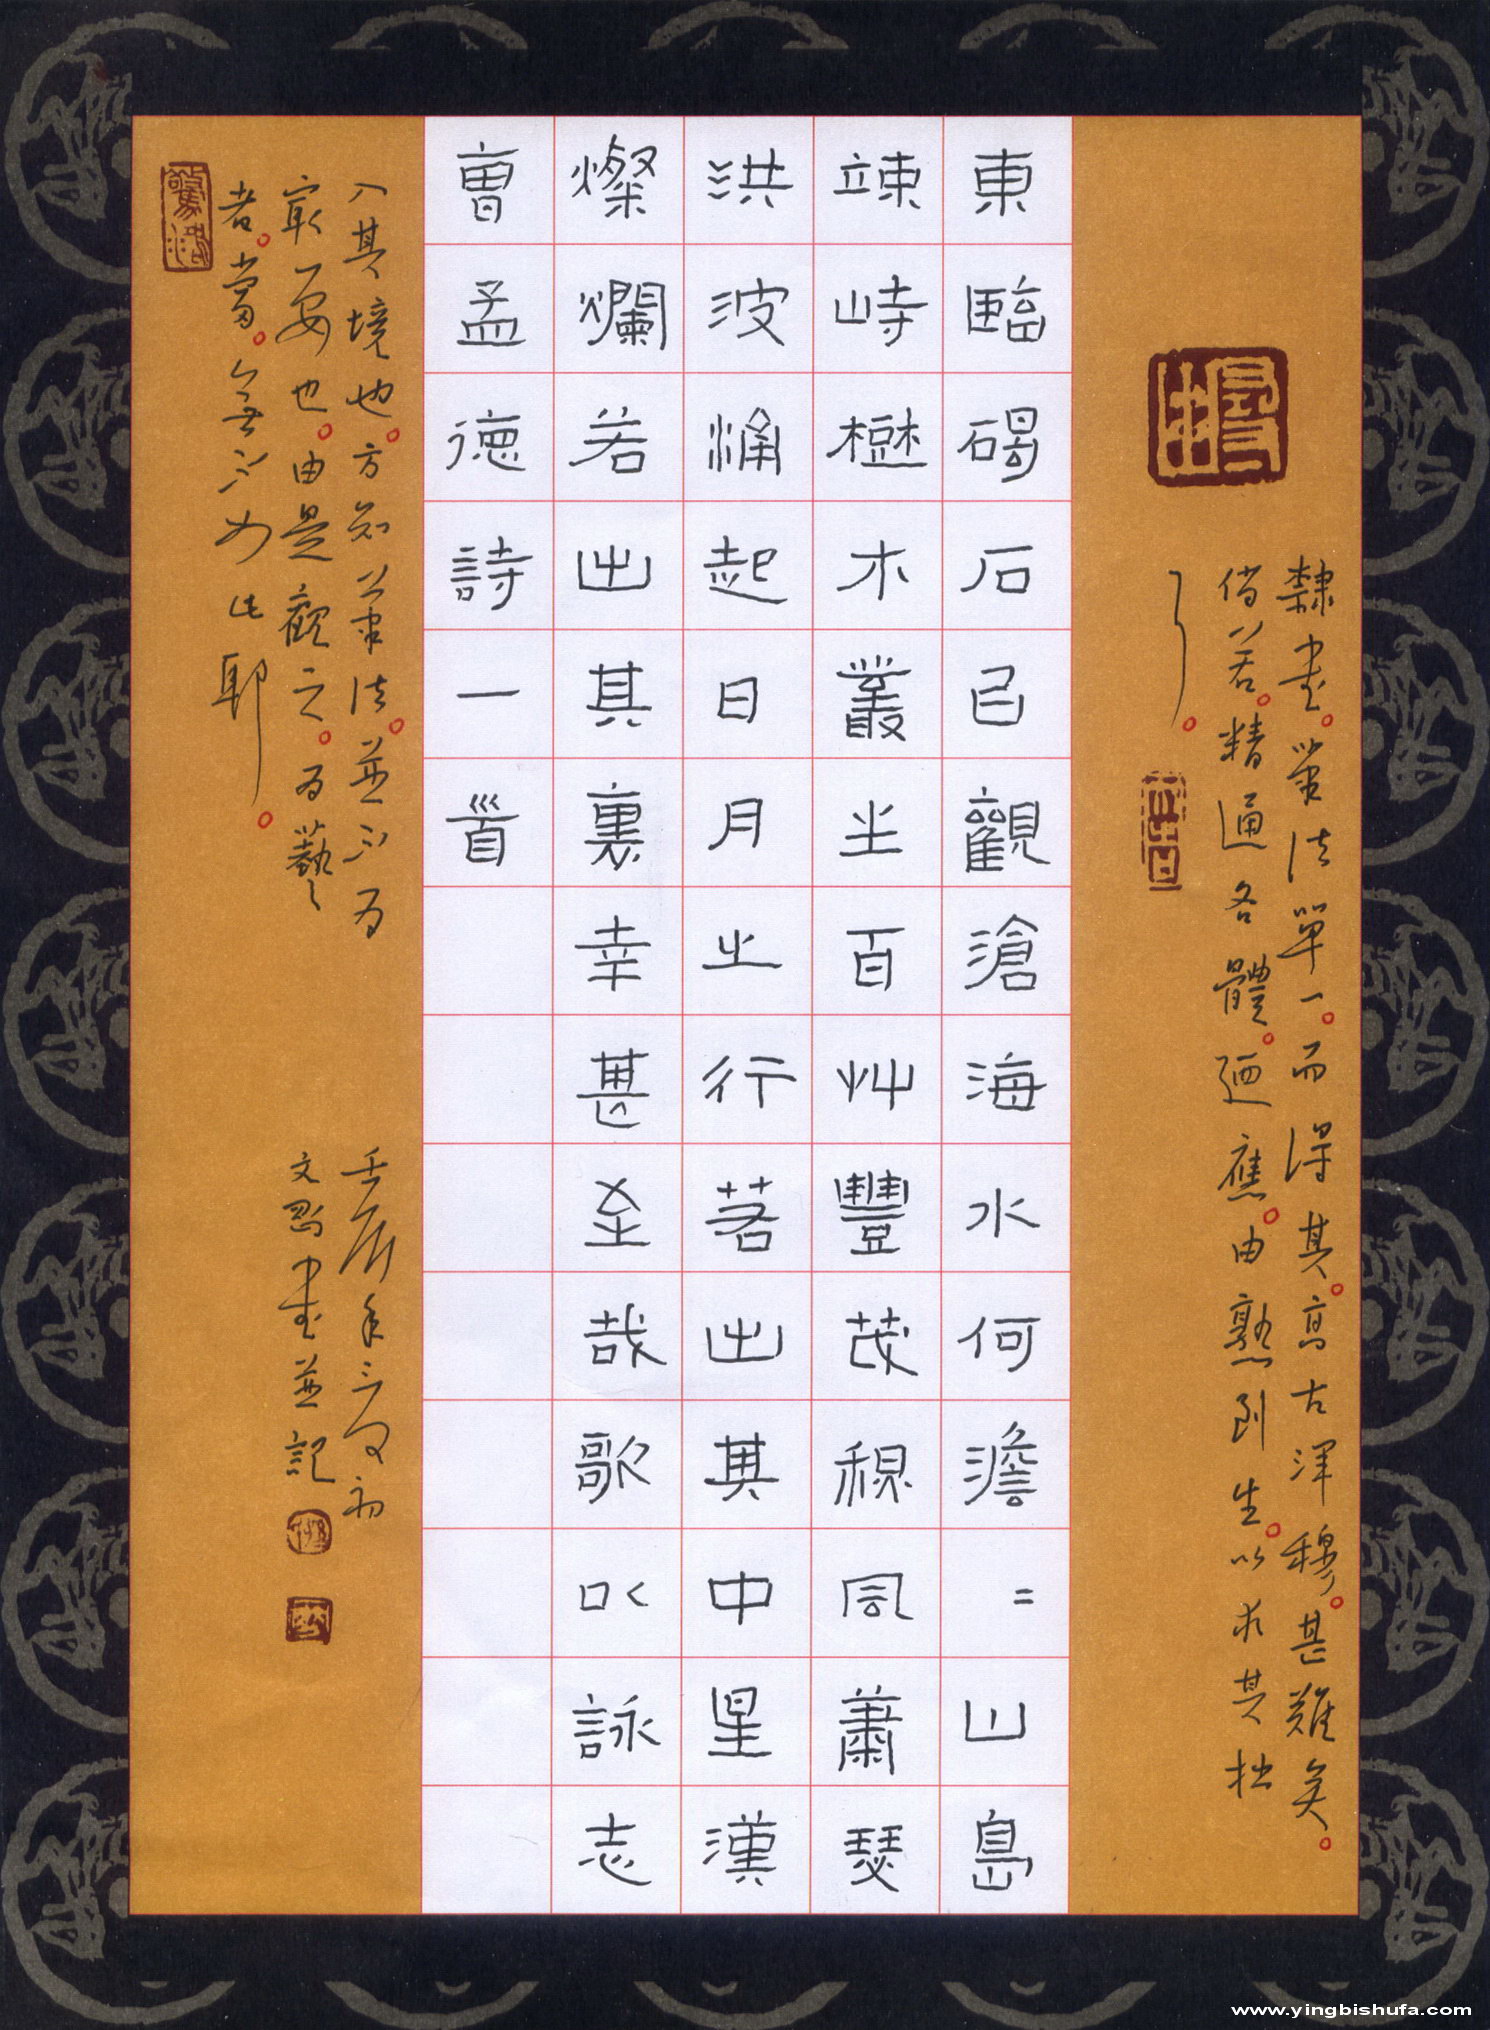 隸書。筆法單一。而得其。高古渾穆。甚難矣。
倘若。精通各體。迺應。由熟到生。以求其拙
東臨碣石㠯觀滄海水何澹=山島
竦峙樹木叢生百艸豐茂秋風蕭瑟
洪波涌起日月之行若出其中星漢
燦爛若出其裏幸甚至哉歌以詠志
曹孟德詩一首
入其境也。方知筆法。並不為
最要也。由是觀之。為藝
者。當。無不如此耶。
壬辰年之夏初
文書並記
www.yingbishufa.com